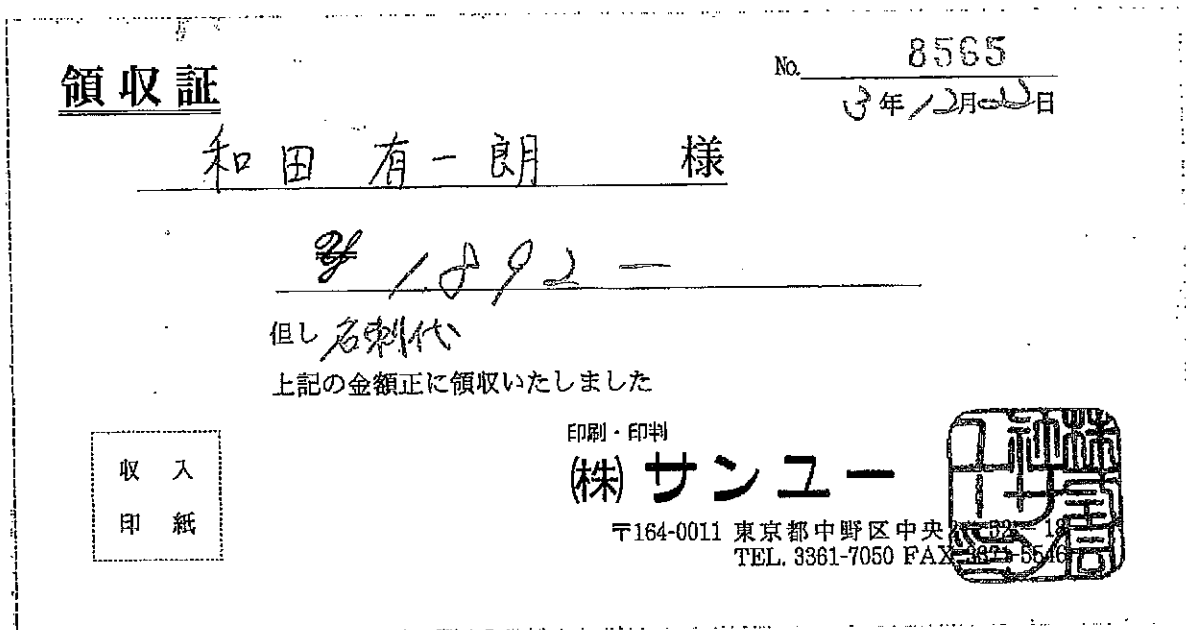 領収証
No. 8565
3年12月 日
和田 有一朗 様
¥1,892―
但し 名刺代
上記の金額正に領収いたしました
収入
印紙
印刷・印判
(株)サンユー
〒164-0011 東京都中野区中央
TEL. 3361-7050 FAX 3371-5546